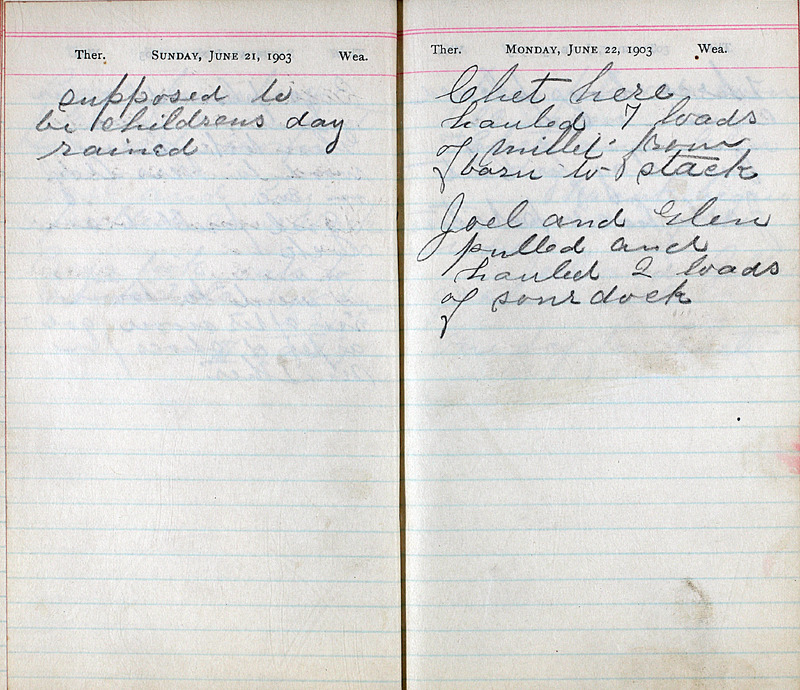 Ther. Sunday, June 21, 1903 Wea.
supposed to
be childrens day
rained
Ther. Monday, June 22, 1903 Wea.
Chet here
hauled 7 loads
of millet from
barn to stack
Joel and Glen
pulled and
hauled 2 loads
of sour dock